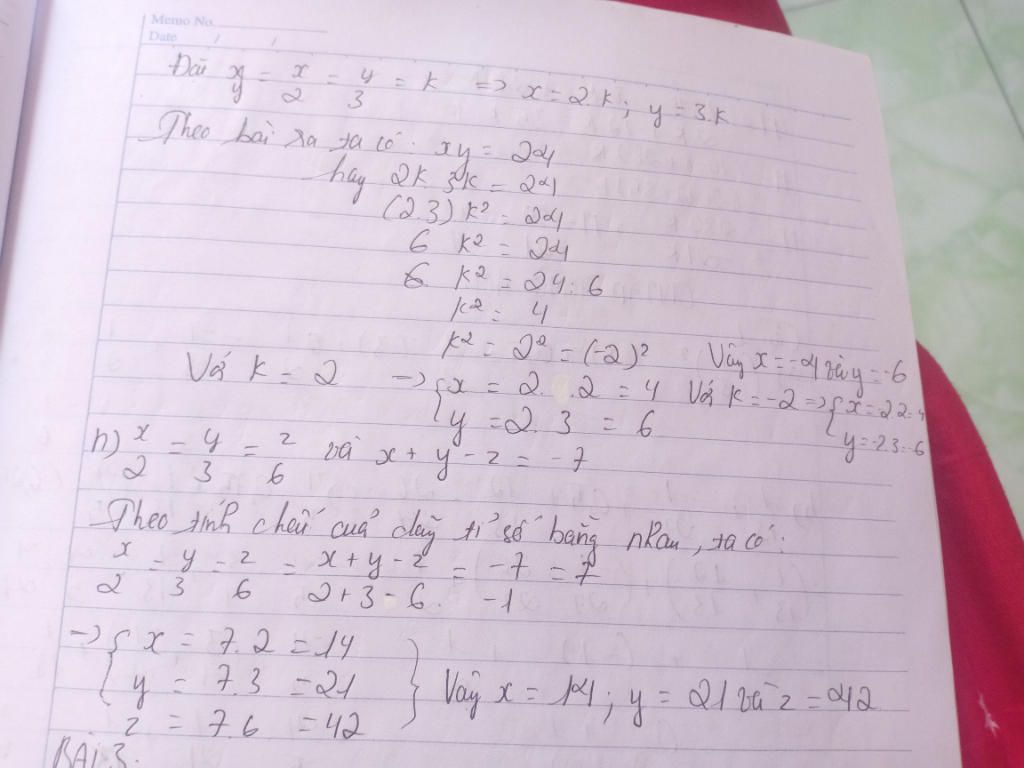 Memo No.
Date / /
Đặt x/y = x/2 = y/3 = k => x = 2k; y = 3.k
Theo bài ra ta có: xy = 24
hay 2k 3k = 24
(2.3) k² = 24
6 k² = 24
6 k² = 24:6
k² = 4
k² = 2² = (-2)² Vậy x = -4 và y = -6
Với k = 2 -> { x = 2.2 = 4 Với k = -2 => { x = -2.2 = -4
y = 2.3 = 6 y = -2.3 = -6
h) x/2 = y/3 = z/6 và x + y - z = -7
Theo tính chất của dãy tỉ số bằng nhau, ta có:
x/2 = y/3 = z/6 = x+y-z/2+3-6 = -7/-1 = 7
-> { x = 7.2 = 14
y = 7.3 = 21 } Vậy x = 14; y = 21 và z = 42
z = 7.6 = 42
BÀI 3: